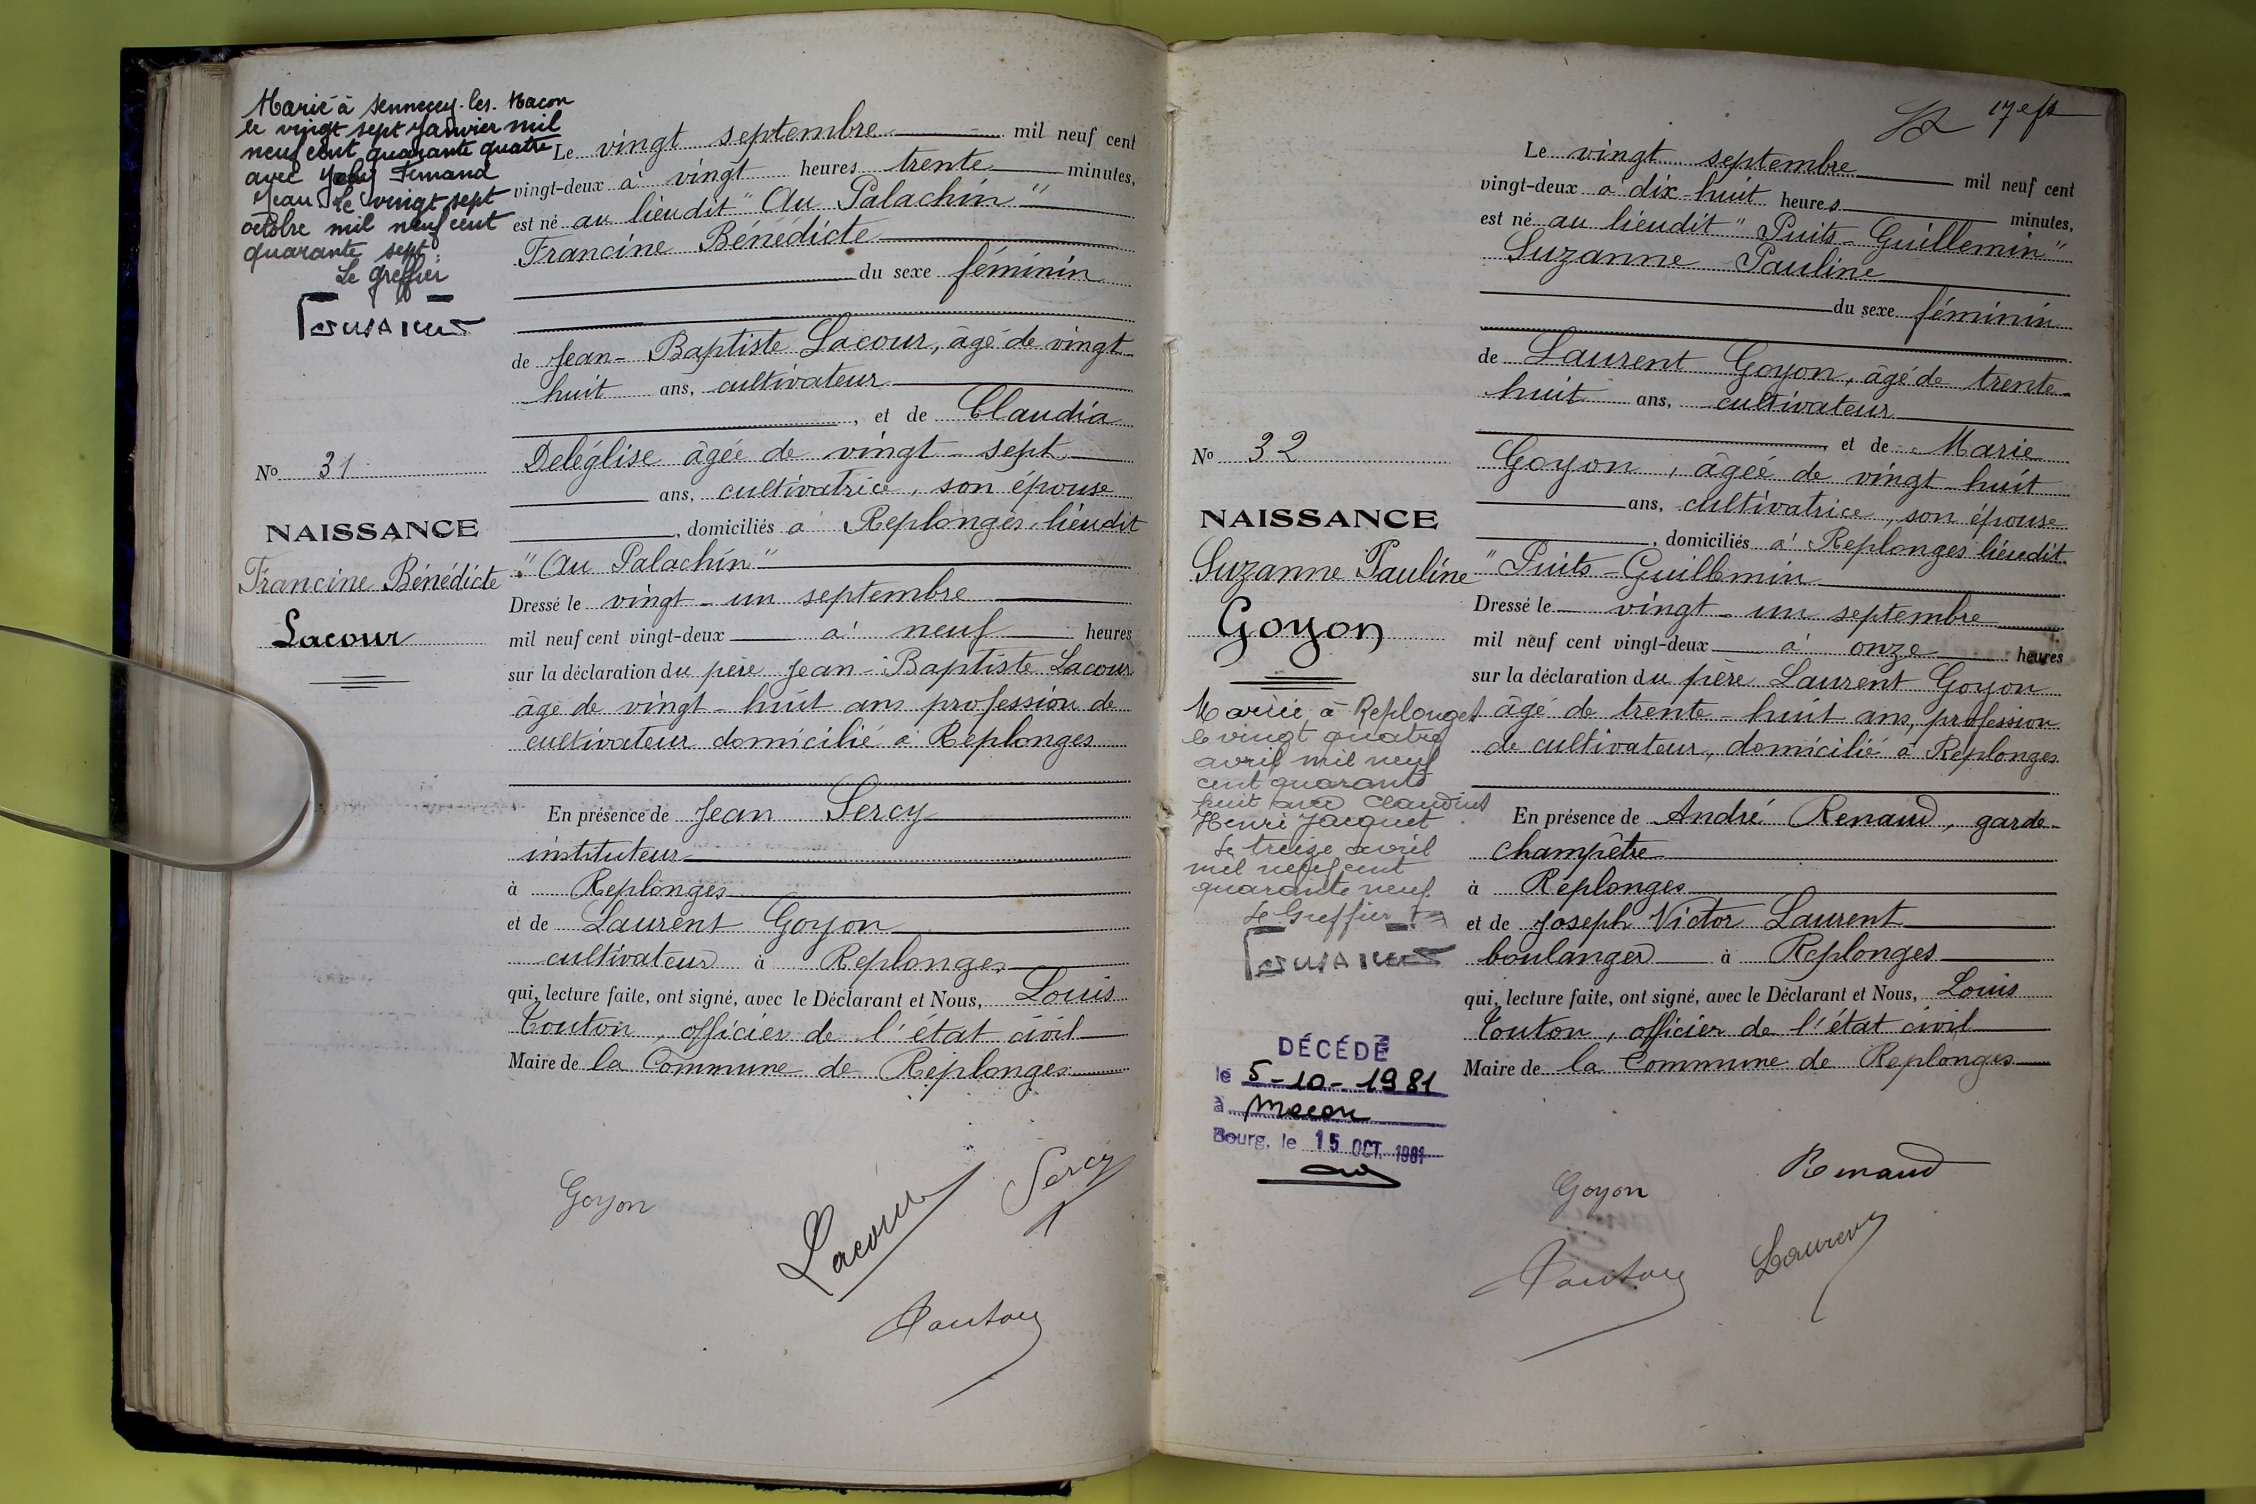 Marié à Sennecey-les-Macon
le vingt sept Janvier mil
neuf cent quarante quatre
avec Fernand
Jean Le vingt sept
octobre mil neuf cent
quarante sept
Le greffier
No 31
NAISSANCE
Francine Bénédicte
Lacour
Le vingt septembre mil neuf cent
vingt-deux à vingt heures trente minutes,
est né au lieudit "Au Palachin"
Francine Bénédicte
du sexe féminin
de Jean-Baptiste Lacour, âgé de vingt
huit ans, cultivateur
, et de Claudia
Deléglise âgée de vingt-sept
ans, cultivatrice, son épouse
, domiciliés à Replonges lieudit
"Au Palachin"
Dressé le vingt-un septembre
mil neuf cent vingt-deux à neuf heures
sur la déclaration du père Jean-Baptiste Lacour
âgé de vingt-huit ans profession de
cultivateur domicilié à Replonges
En présence de Jean Sercy
instituteur
à Replonges
et de Laurent Goyon
cultivateur à Replonges
qui, lecture faite, ont signé, avec le Déclarant et Nous, Louis
Touton, officier de l'état civil
Maire de la Commune de Replonges
Goyon
Lacour
Sercy
Touton
No 32
NAISSANCE
Suzanne Pauline
Goyon
Mariée à Replonges
le vingt quatre
avril mil neuf
cent quarante
huit avec Claudius
Henri Jacquet
Le treize avril
mil neuf cent
quarante neuf
Le Greffier
DÉCÉDÉ
le 5-10-1981
à Macon
Bourg, le 15 OCT. 1981
Le vingt septembre mil neuf cent
vingt-deux à dix-huit heures minutes,
est né au lieudit "Puits-Guillemin"
Suzanne Pauline
du sexe féminin
de Laurent Goyon, âgé de trente-
huit ans, cultivateur
, et de Marie
Goyon, âgée de vingt-huit
ans, cultivatrice, son épouse
, domiciliés à Replonges lieudit
"Puits-Guillemin
Dressé le vingt-un septembre
mil neuf cent vingt-deux à onze heures
sur la déclaration du père Laurent Goyon
âgé de trente-huit ans, profession
de cultivateur, domicilié à Replonges
En présence de André Renaud, garde-
champêtre
à Replonges
et de Joseph Victor Laurent
boulanger à Replonges
qui, lecture faite, ont signé, avec le Déclarant et Nous, Louis
Touton, officier de l'état civil
Maire de la Commune de Replonges
Goyon
Renaud
Touton
Laurent